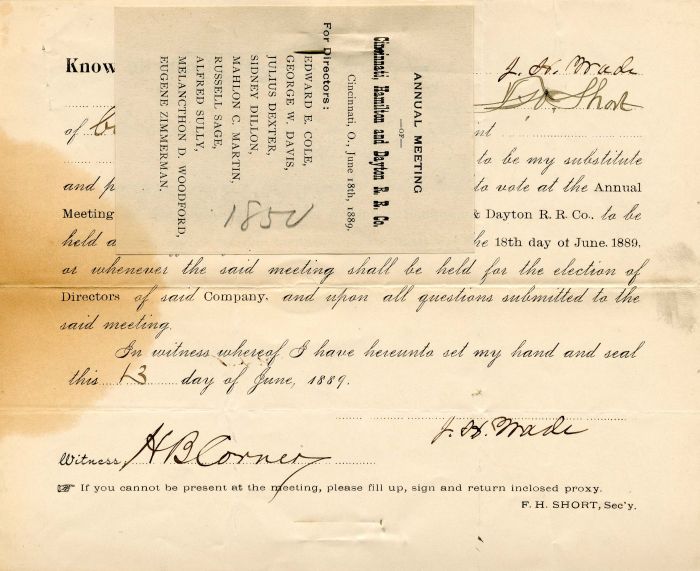 Know
J. H. Wade
Short
of
to be my substitute
and p
to vote at the Annual
Meeting
& Dayton R. R. Co., to be
held a
he 18th day of June, 1889,
or whenever the said meeting shall be held for the election of
Directors of said Company, and upon all questions submitted to the
said meeting.
In witness whereof, I have hereunto set my hand and seal
this 13 day of June, 1889.
J. H. Wade
Witness, H B Corner
☞ If you cannot be present at the meeting, please fill up, sign and return inclosed proxy.
F. H. SHORT, Sec'y.
ANNUAL MEETING
—OF—
Cincinnati, Hamilton and Dayton R. R. Co.
Cincinnati, O., June 18th, 1889.
For Directors:
EDWARD E. COLE,
GEORGE W. DAVIS,
JULIUS DEXTER,
SIDNEY DILLON,
MAHLON C. MARTIN,
RUSSELL SAGE,
ALFRED SULLY,
MELANCTHON D. WOODFORD,
EUGENE ZIMMERMAN.
1850